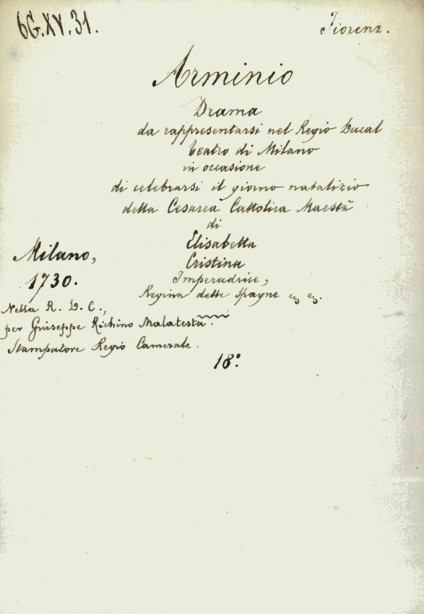 6G.XV.31.
Fiorenz.
Arminio
Drama
da rappresentarsi nel Regio Ducal
Teatro di Milano
in occasione
di celebrarsi il giorno natalizio
della Cesarea Cattolica Maestà
di
Elisabetta
Cristina
Imperadrice,
Regina delle Spagne
Milano,
1730.
Nella R. D. C.,
per Giuseppe Richino Malatesta.
Stampatore Regio Camerale.
18°.